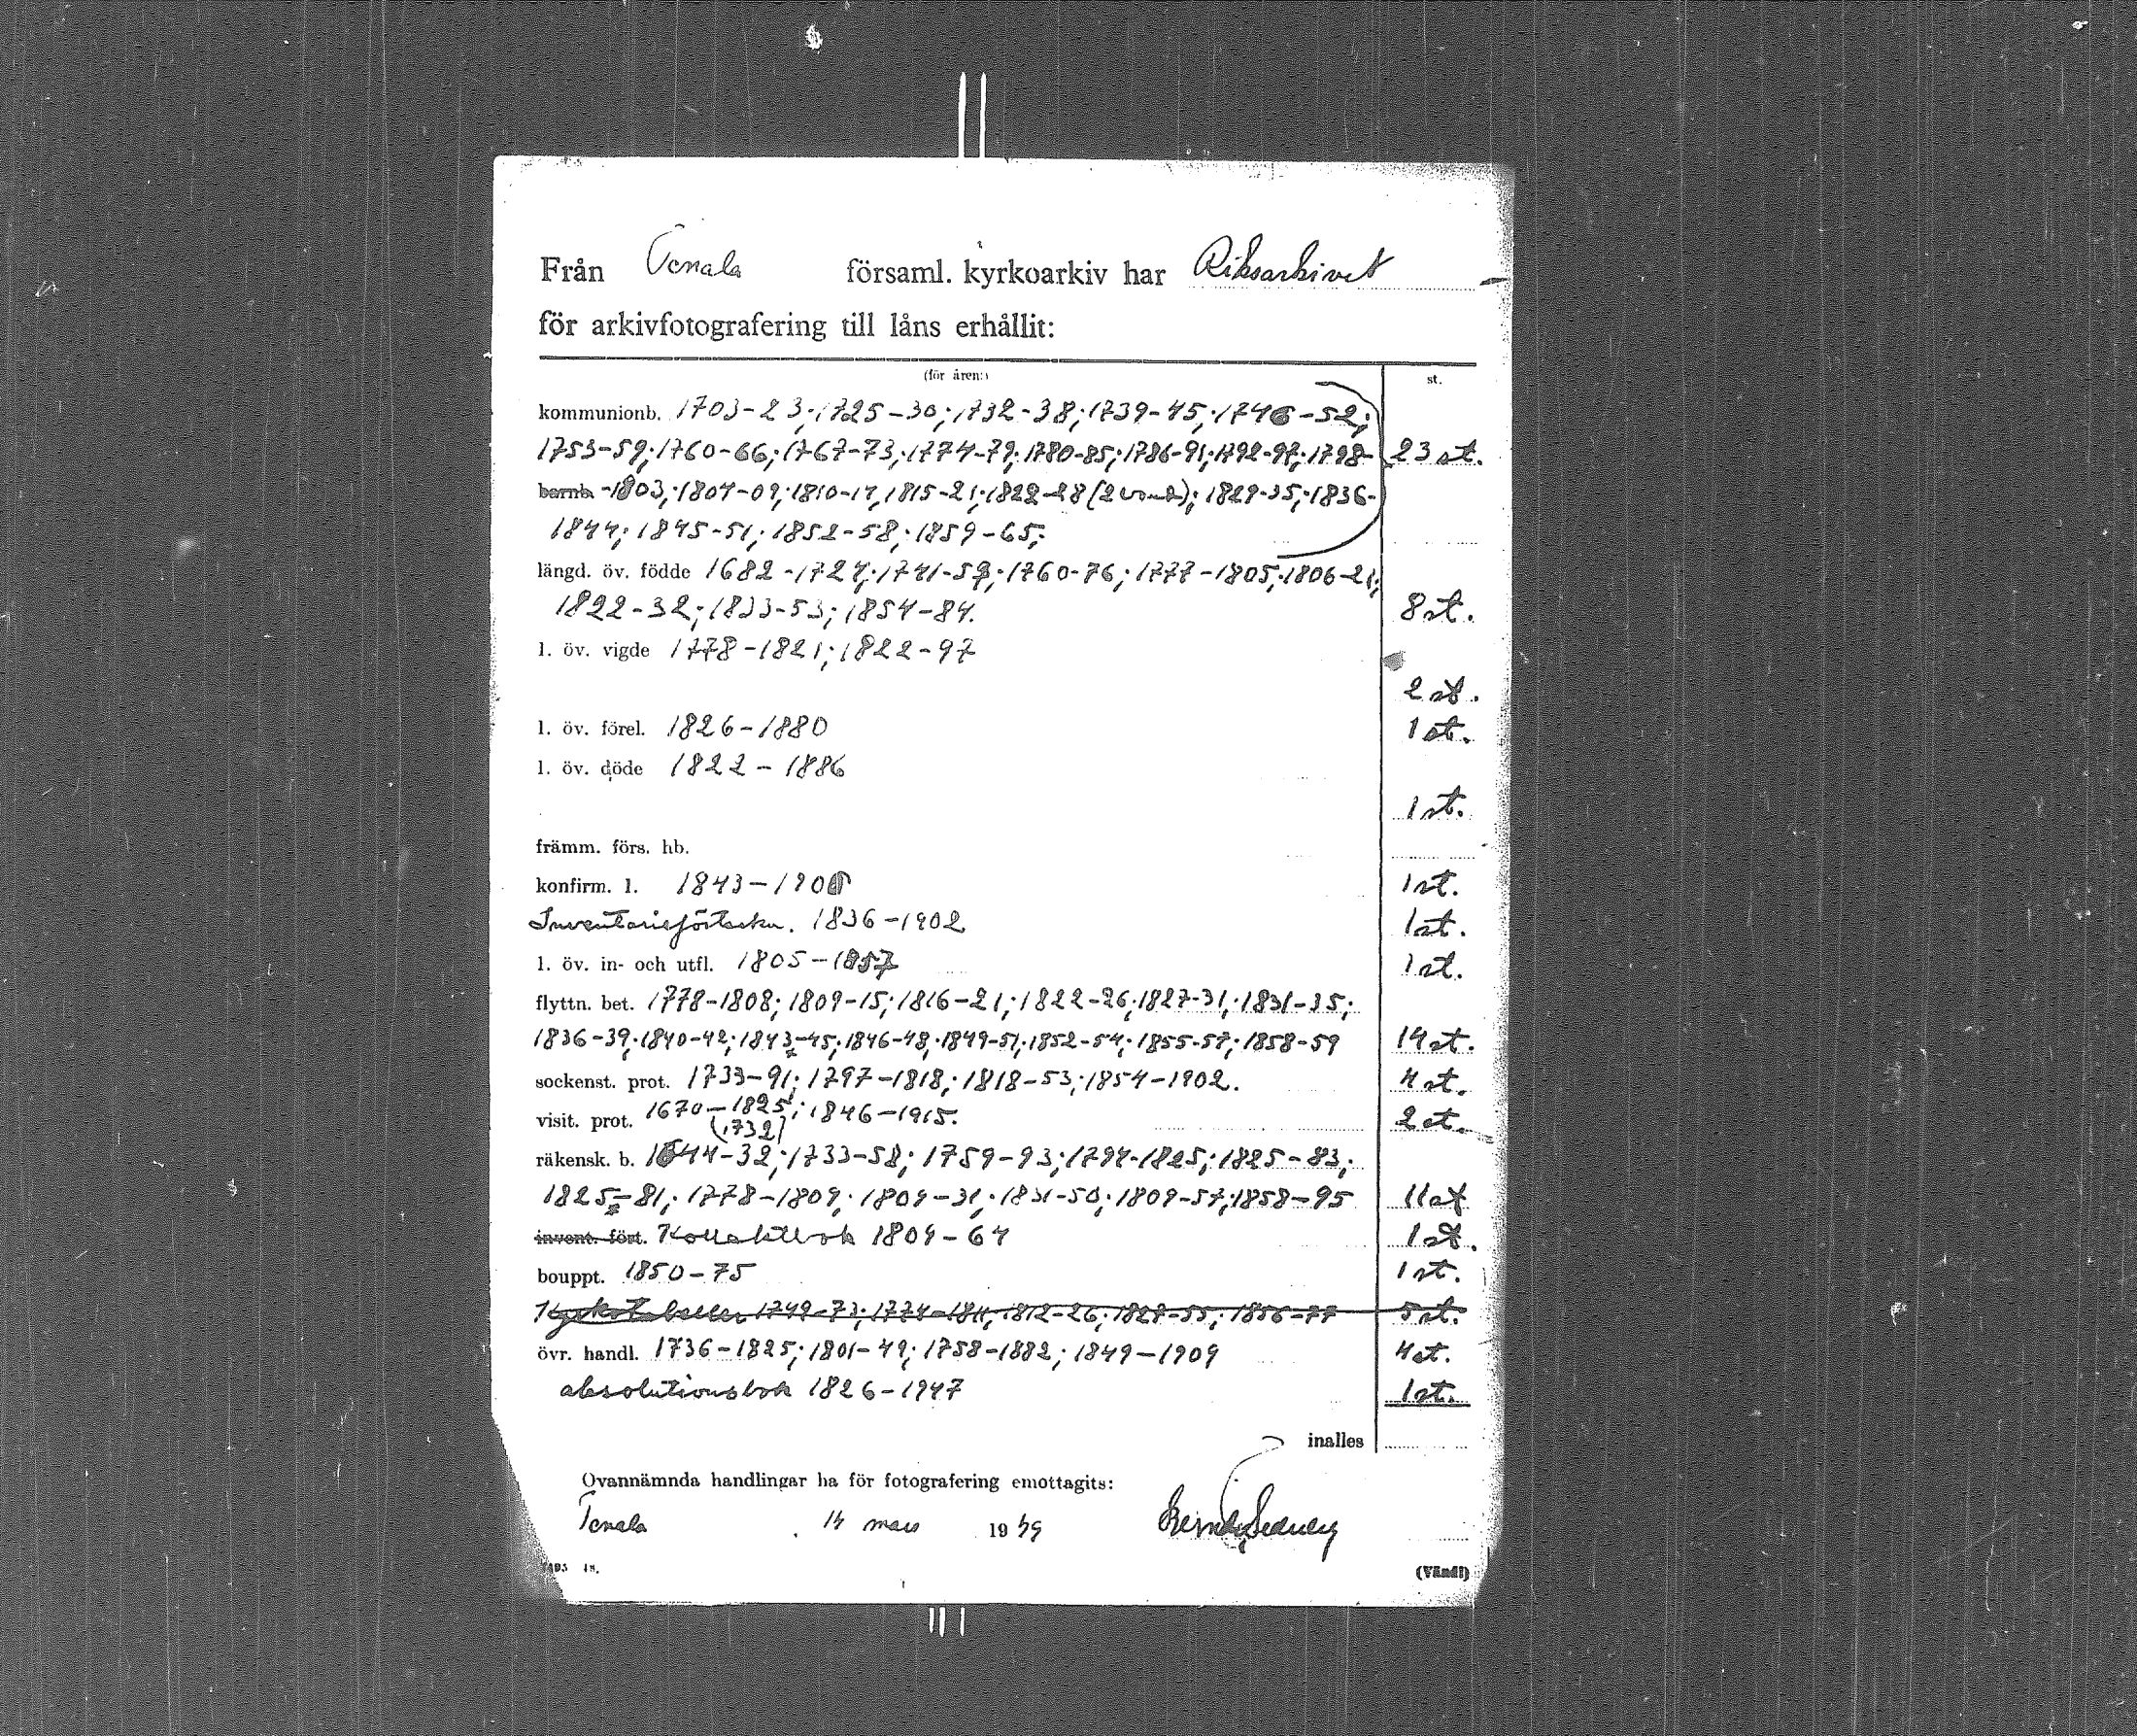 Från Tenala församl. kyrkoarkiv har Riksarkivet
för arkivfotografering till låns erhållit:
(för åren:) st.
kommunionb. 1703-23; 1725-30; 1732-38; 1739-45; 1746-52;
1753-59; 1760-66; 1767-73; 1774-79; 1780-85; 1786-91; 1792-97; 1798- 23 st.
barnb. -1803; 1804-09; 1810-14; 1815-21; 1822-28 (2 vol.); 1829-35; 1836-
1844; 1845-51; 1852-58; 1859-65;
längd. öv. födde 1682-1724; 1741-59; 1760-76; 1777-1805; 1806-21;
1822-32; 1833-53; 1854-84. 8 st.
l. öv. vigde 1778-1821; 1822-97
2 st.
l. öv. förel. 1826-1880 1 st.
l. öv. döde 1822-1886
1 st.
främm. förs. hb.
konfirm. l. 1843- 1 st.
Inventarieförteckn. 1836-1902 1 st.
l. öv. in- och utfl. 1805-1857 1 st.
flyttn. bet. 1778-1808; 1809-15; 1816-21; 1822-26; 1827-31; 1831-35;
1836-39; 1840-42; 1843-45; 1846-48; 1849-51; 1852-54; 1855-57; 1858-59 14 st.
sockenst. prot. 1733-91; 1797-1818; 1818-53; 1854-1902. 4 st.
visit. prot. 1670-1825; 1846-1915. 2 st.
(1732)
räkensk. b. 1644-32; 1733-58; 1759-93; 1794-1825; 1825-83;
1825-81; 1778-1809; 1809-31; 1831-50; 1809-57; 1858-95 11 st
invent. fört. Kollektbok 1804-64 1 st.
bouppt. 1850-75 1 st.
Kyrkotabeller 1749-73; 1774-1811; 1812-26; 1827-55; 1856-77 5 st.
övr. handl. 1736-1825; 1801-49; 1758-1882; 1849-1909 4 st.
absolutionsbok 1826-1947 1 st.
inalles
Ovannämnda handlingar ha för fotografering emottagits:
Tenala 14 mars 19 49
(Vänd!)